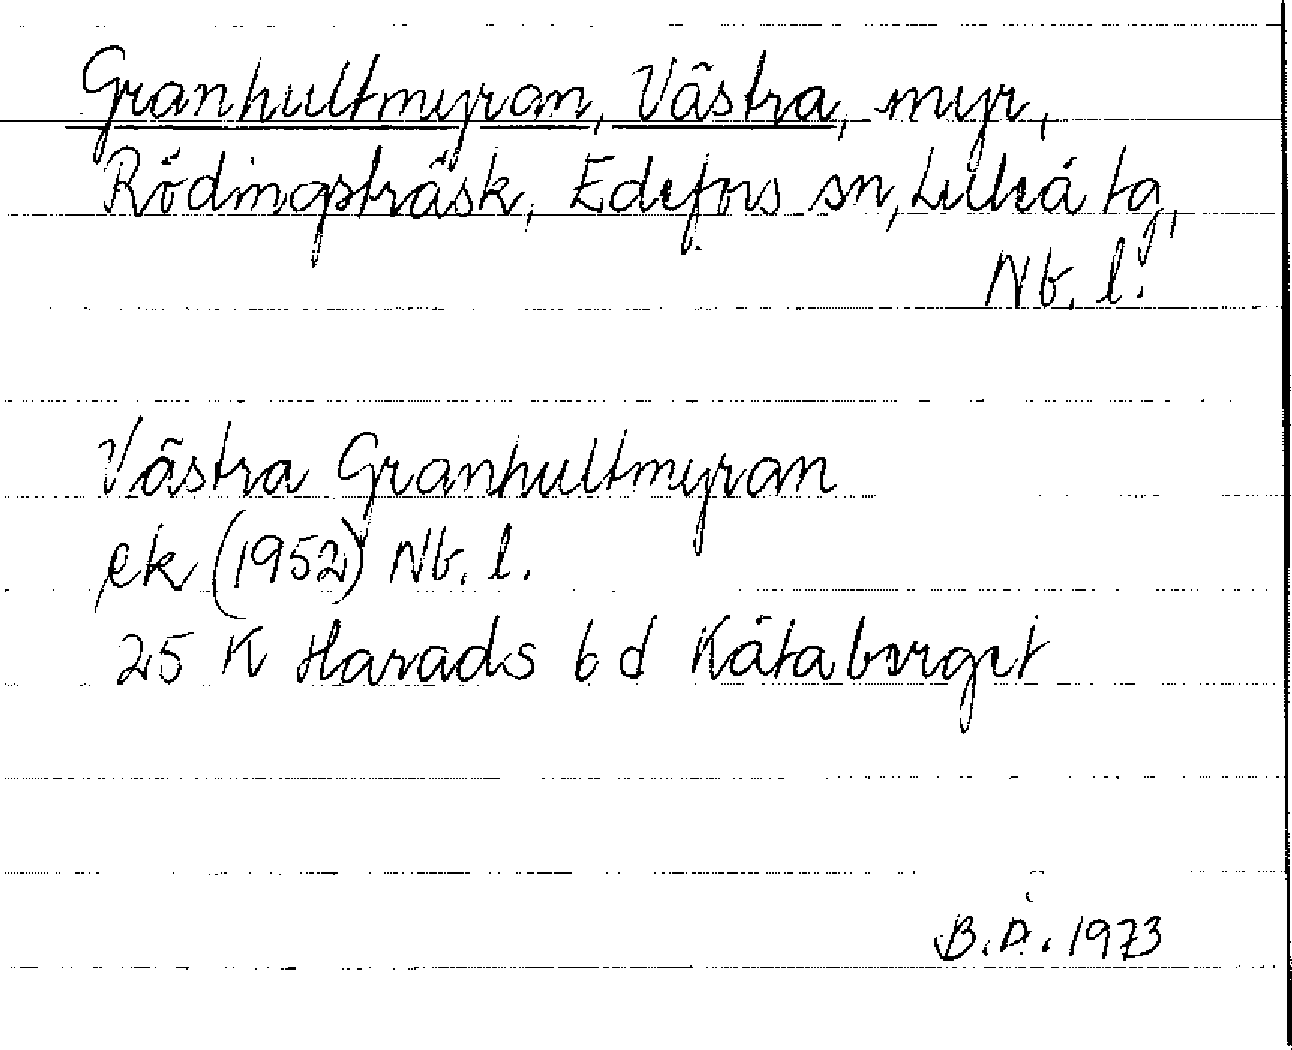 Granhultmyran, Västra, myr,
Rödingsträsk, Edefors sn, Luleå tg,
Nb. l.
Västra Granhultmyran
ek (1952) Nb. l.
25 K Harads 6 d Kåtaberget
B.Å. 1973